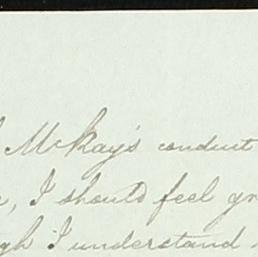 McKay's conduct
, I should feel
I understand